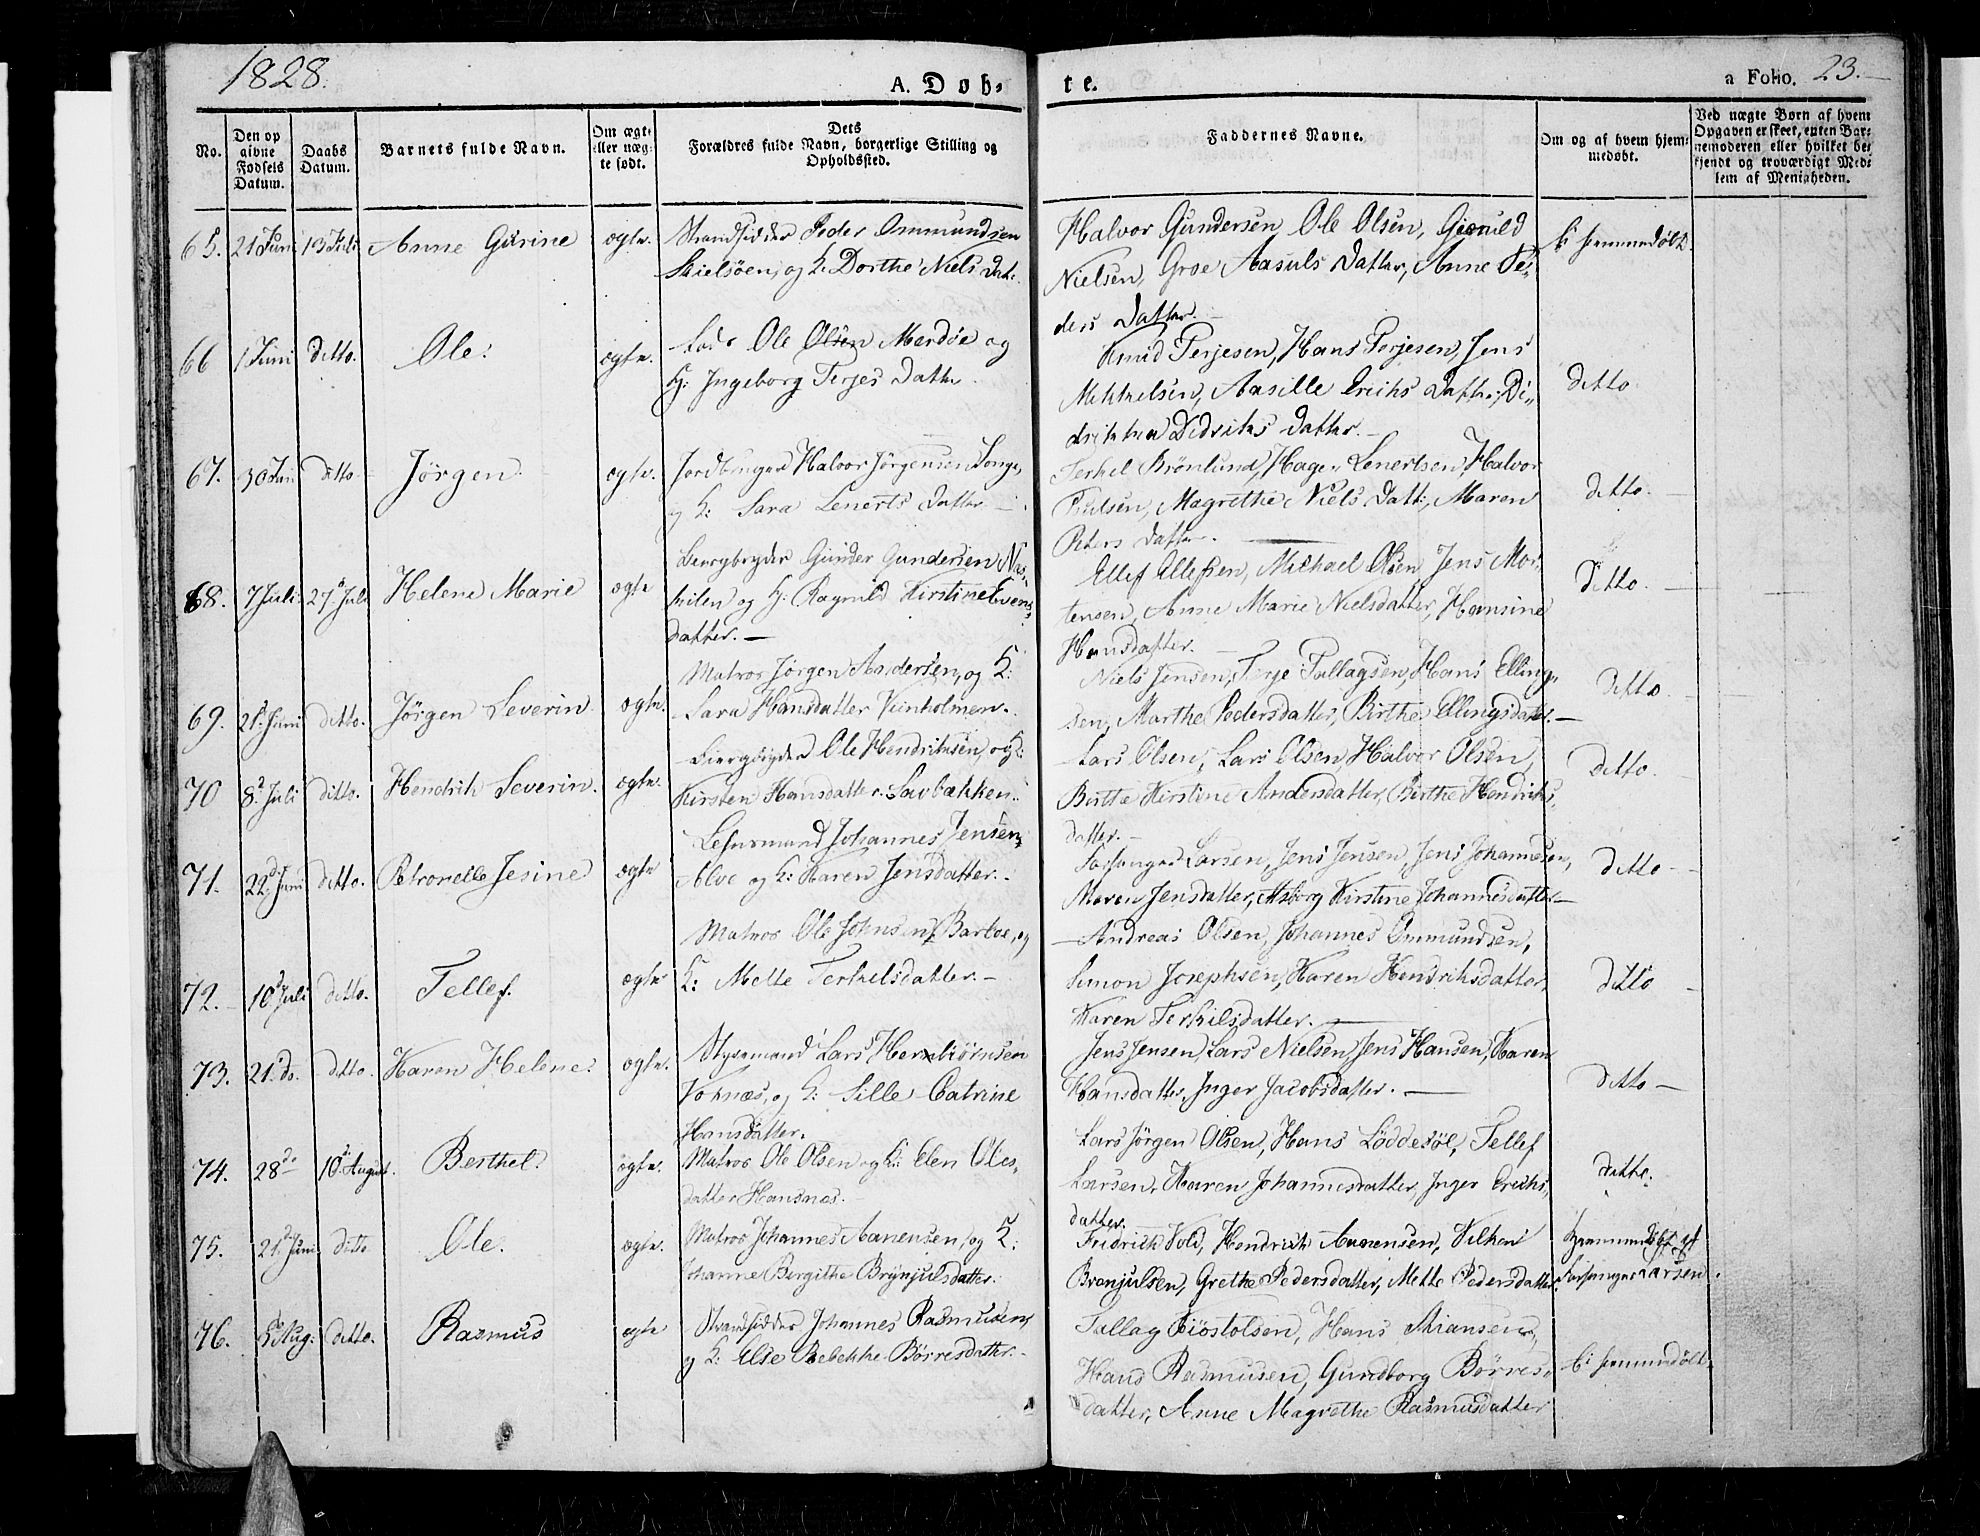 1828.
A. Døb-
te.
a Folio. 23.
No.
Den opgivne Fødsels Datum.
Daabs Datum.
Barnets fulde Navn.
Om ægte eller uægte født.
Dets Forældres fulde Navn, borgerlige Stilling og Opholdssted.
Faddernes Navne.
Om og af hvem hjemmedøbt.
Ved uægte Børn af hvem Opgaven er skeet, enten Barnemoderen eller hvilket bekjendt og troværdigt Medlem af Menigheden.
65. 21 Juni 13 Juli Anne Gurine ægte.
Strandsidder Peder Ommundsen
og K: Dorthe Niels Dat:
Halvor Gundersen Ole Olsen,
Nielsen, Groe Aasuls Datter, Anne Pe-
ders Datter.
66 1 Juni ditto. Ole. ægte.
Lods Ole Olsen Merdøe og
K: Ingeborg Terjes Datter.
Knud Terjesen, Hans Terjesen, Jens
Mikkelsen, Aasille Erichs Datter, Di-
drikke Didriks Datter.
ditto
67. 30 Juni ditto Jörgen. ægte.
Jordbruger Halvor Jörgensen Songe,
og K: Sara Lenerts Datter
Terkel Brönlund, Hage Lenertsen, Halvor
Magrethe Niels Datt:, Maren
Peters Datter.
ditto.
68. 7 Juli 27 Juli Helene Marie ægte
Bergbryder Gunder Gundersen Nas-
kilen og K: Ragnild Kirstine Evens-
datter.
Ellef Ellefsen, Michael Olsen, Jens Mor-
tensen, Anne Marie Nielsdatter, Hansine
Hansdatter.
ditto.
69. 21 Juni ditto. Jörgen Severin ægte.
Matros Jörgen Andersen, og K:
Sara Hansdatter
Niels Jensen, Terje Tallagsen, Hans Elling-
sen, Marthe Pedersdatter, Birthe Ellingsdatter.
ditto.
70 8d Juli ditto. Hendrik Severin. ægte.
Ole Hendriksen, og K:
Kirsten Hansdatter. Savbækken.
Lars Olsen, Lars Olsen, Halvor Olsen,
Birthe Kirstine Andersdatter, Birthe Hendriks-
datter.
ditto.
71. 22d Juni ditto. Petronelle Jesine ægte
Johannes Jensen,
Alve og K: Karen Jensdatter.
Larsen, Jens Jensen, Jens Johannesen,
Maren Jensdatter, Asborg Kirstine Johannesdatter
ditto
72. 10d Juli ditto. Tellef. ægte
Matros Ole Johnsen, Barboe, og
K: Mette Terkelsdatter.
Andreas Olsen, Johannes Ommundsen,
Simon Josephsen, Karen Hendriksdatter,
Karen Terkilsdatter.
ditto
73. 21. do. ditto. Karen Helene. ægte.
Styrmand Lars Herbiörnsen
og K: Sille Catrine
Hansdatter.
Jens Jensen, Lars Nielsen, Jens Hansen, Karen
Hansdatter, Inger Jacobsdatter.
ditto
74. 28 do 10d August. Berthel. ægte.
Matros Ole Olsen og K: Elen Oles-
datter Hansnæs.
Lars Jörgen Olsen, Hans Löddesöl, Tellef
Larsen, Karen Johannesdatter, Inger Erichs-
datter.
ditto.
75. 21d Juni ditto Ole. ægte.
Matros Johannes Aanensen, og K:
Johanne Birgithe Brynjulsdatter.
Fridrick Vold, Hendrick Aanensen, Vilken
Brønjulsen, Grethe Pedersdatter, Mette Pedersdatter.
hjemmedøbt af
Larsen.
76. 5 Aug: ditto. Rasmus ægte
Strandsidder Johannes Rasmusen,
og K: Else Rebekke Börresdatter.
Tallag Tiöstolsen, Hans
Hans Rasmusen, Gundborg Börres-
datter, Anne Magrethe Rasmusdatter
Ei hjemmedöbt.